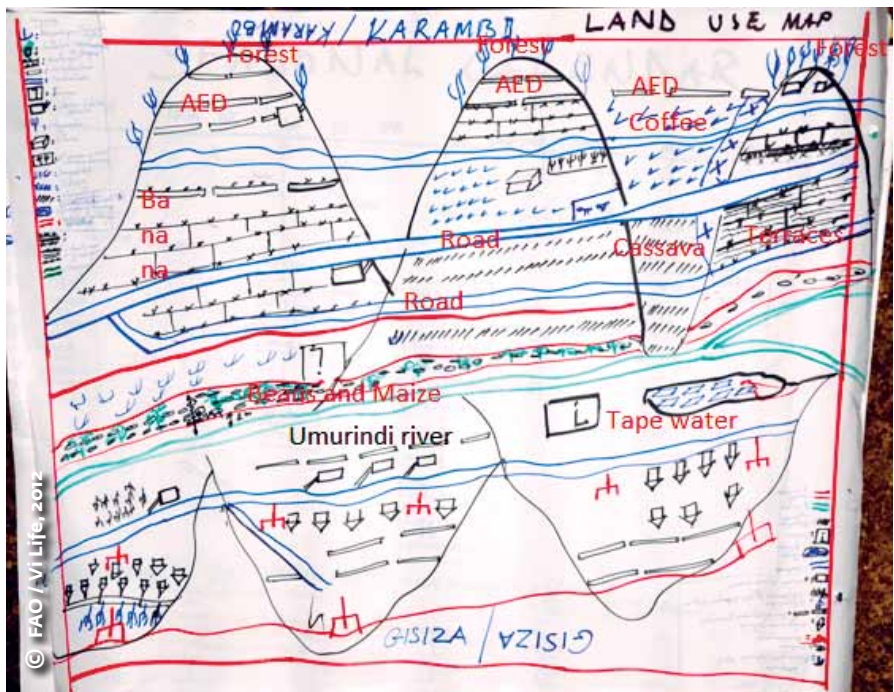 KARAMBO / KARAMBO LAND USE MAP
Forest Forest Forest
AED AED AED
Coffee
Ba
na
na
Road Cassava Terraces
Road
?
Beans and Maize
L Tape water
Umurindi river
GISIZA / GISIZA
© FAO / Vi Life, 2012